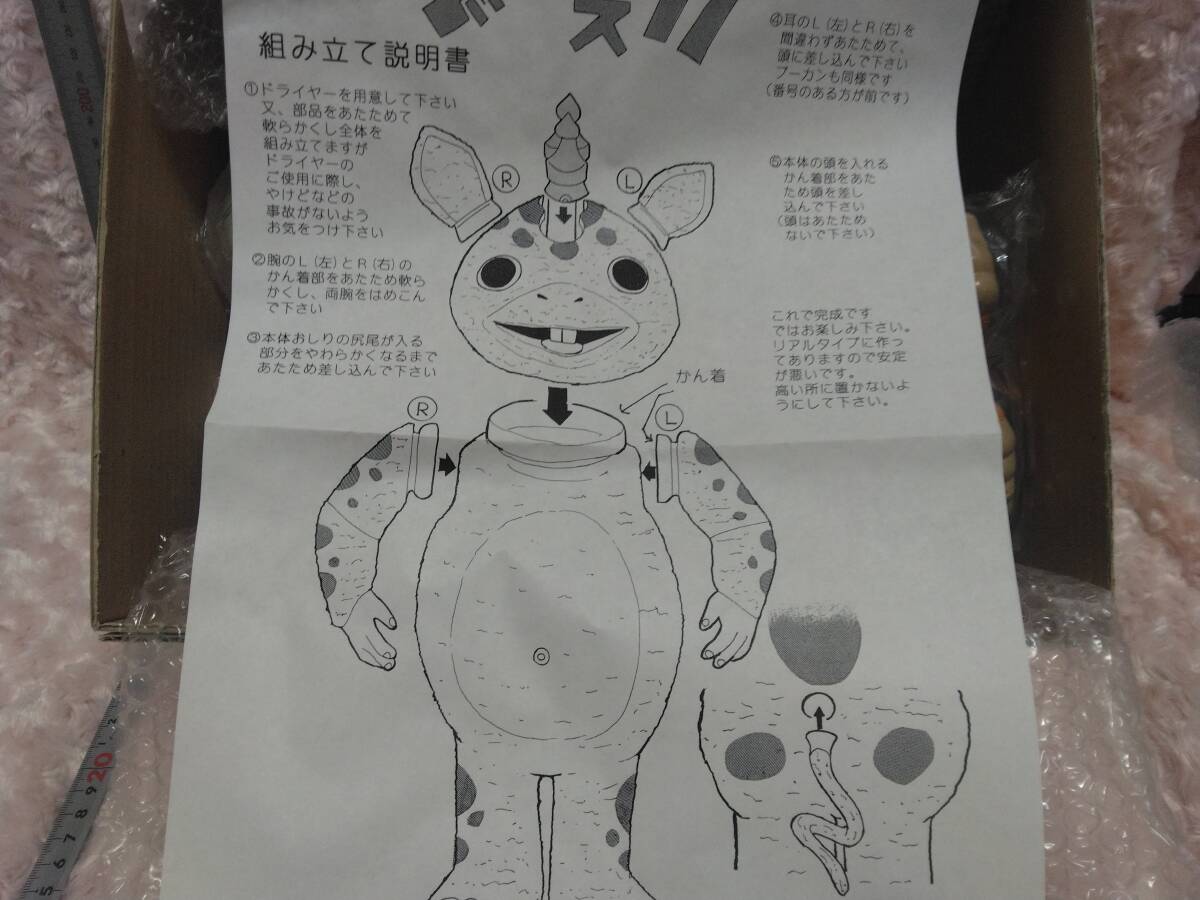 スリ
組み立て説明書
①ドライヤーを用意して下さい
又、部品をあたためて
軟らかくし全体を
組み立てますが
ドライヤーの
ご使用に際し、
やけどなどの
事故がないよう
お気をつけ下さい
②腕のL(左)とR(右)の
かん着部をあたため軟ら
かくし、両腕をはめこん
で下さい
③本体おしりの尻尾が入る
部分をやわらかくなるまで
あたため差し込んで下さい
④耳のL(左)とR(右)を
間違わずあたためて、
頭に差し込んで下さい
ブーカンも同様です
(番号のある方が前です)
⑤本体の頭を入れる
かん着部をあた
ため頭を差し
込んで下さい
(頭はあたため
ないで下さい)
これで完成です
ではお楽しみ下さい。
リアルタイプに作っ
てありますので安定
が悪いです。
高い所に置かないよ
うにして下さい。
R
L
かん着
R
L
200
5 6 7 8 9 20 1 2